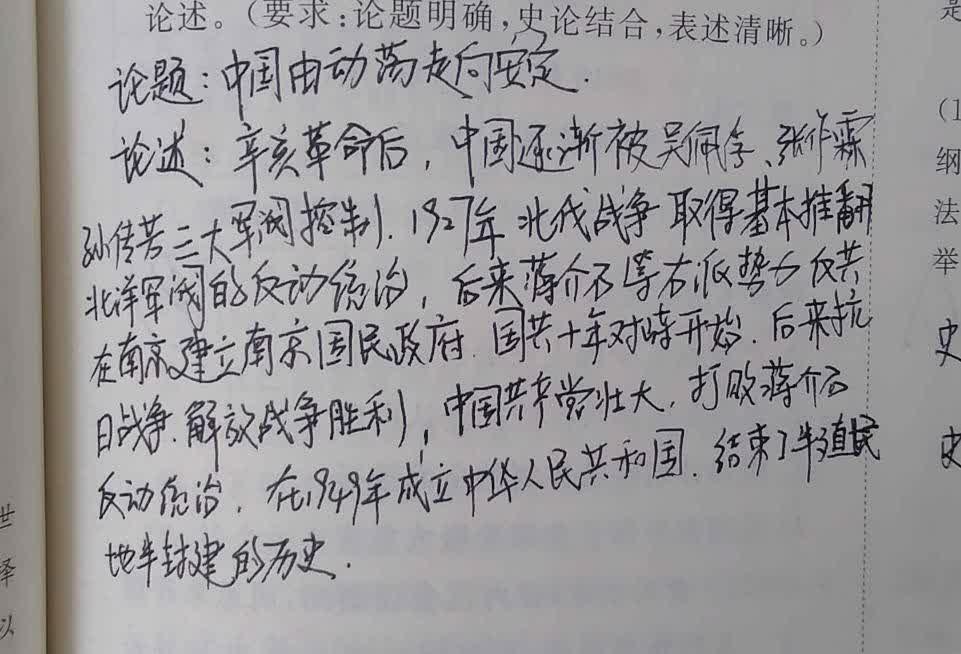 论述。(要求:论题明确,史论结合,表述清晰。)
论题:中国由动荡走向安定.
论述:辛亥革命后,中国逐渐被吴佩孚、张作霖
孙传芳三大军阀控制.1927年北伐战争取得基本推翻
北洋军阀的反动统治,后来蒋介石等右派势力反共
在南京建立南京国民政府.国共十年对峙开始.后来抗
日战争、解放战争胜利,中国共产党壮大,打败蒋介石
反动统治,在1949年成立中华人民共和国.结束了半殖民
地半封建的历史.
是
(1
纲
法
举
史
史
世
择
以